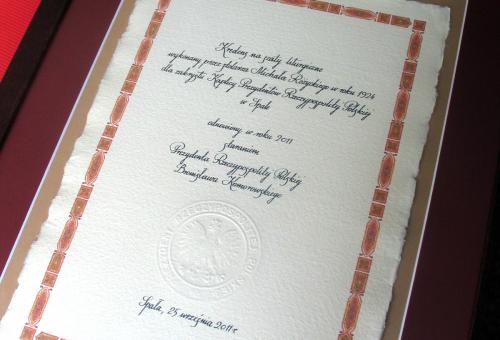 Kredens na szaty liturgiczne
wykonany przez stolarza Michała Rożyckiego w roku 1924
dla zakrystii Kaplicy Prezydentów Rzeczypospolitej Polskiej
w Spale
odnowiony w roku 2011
staraniem
Prezydenta Rzeczypospolitej Polskiej
Bronisława Komorowskiego
Spała, 25 września 2011 r.